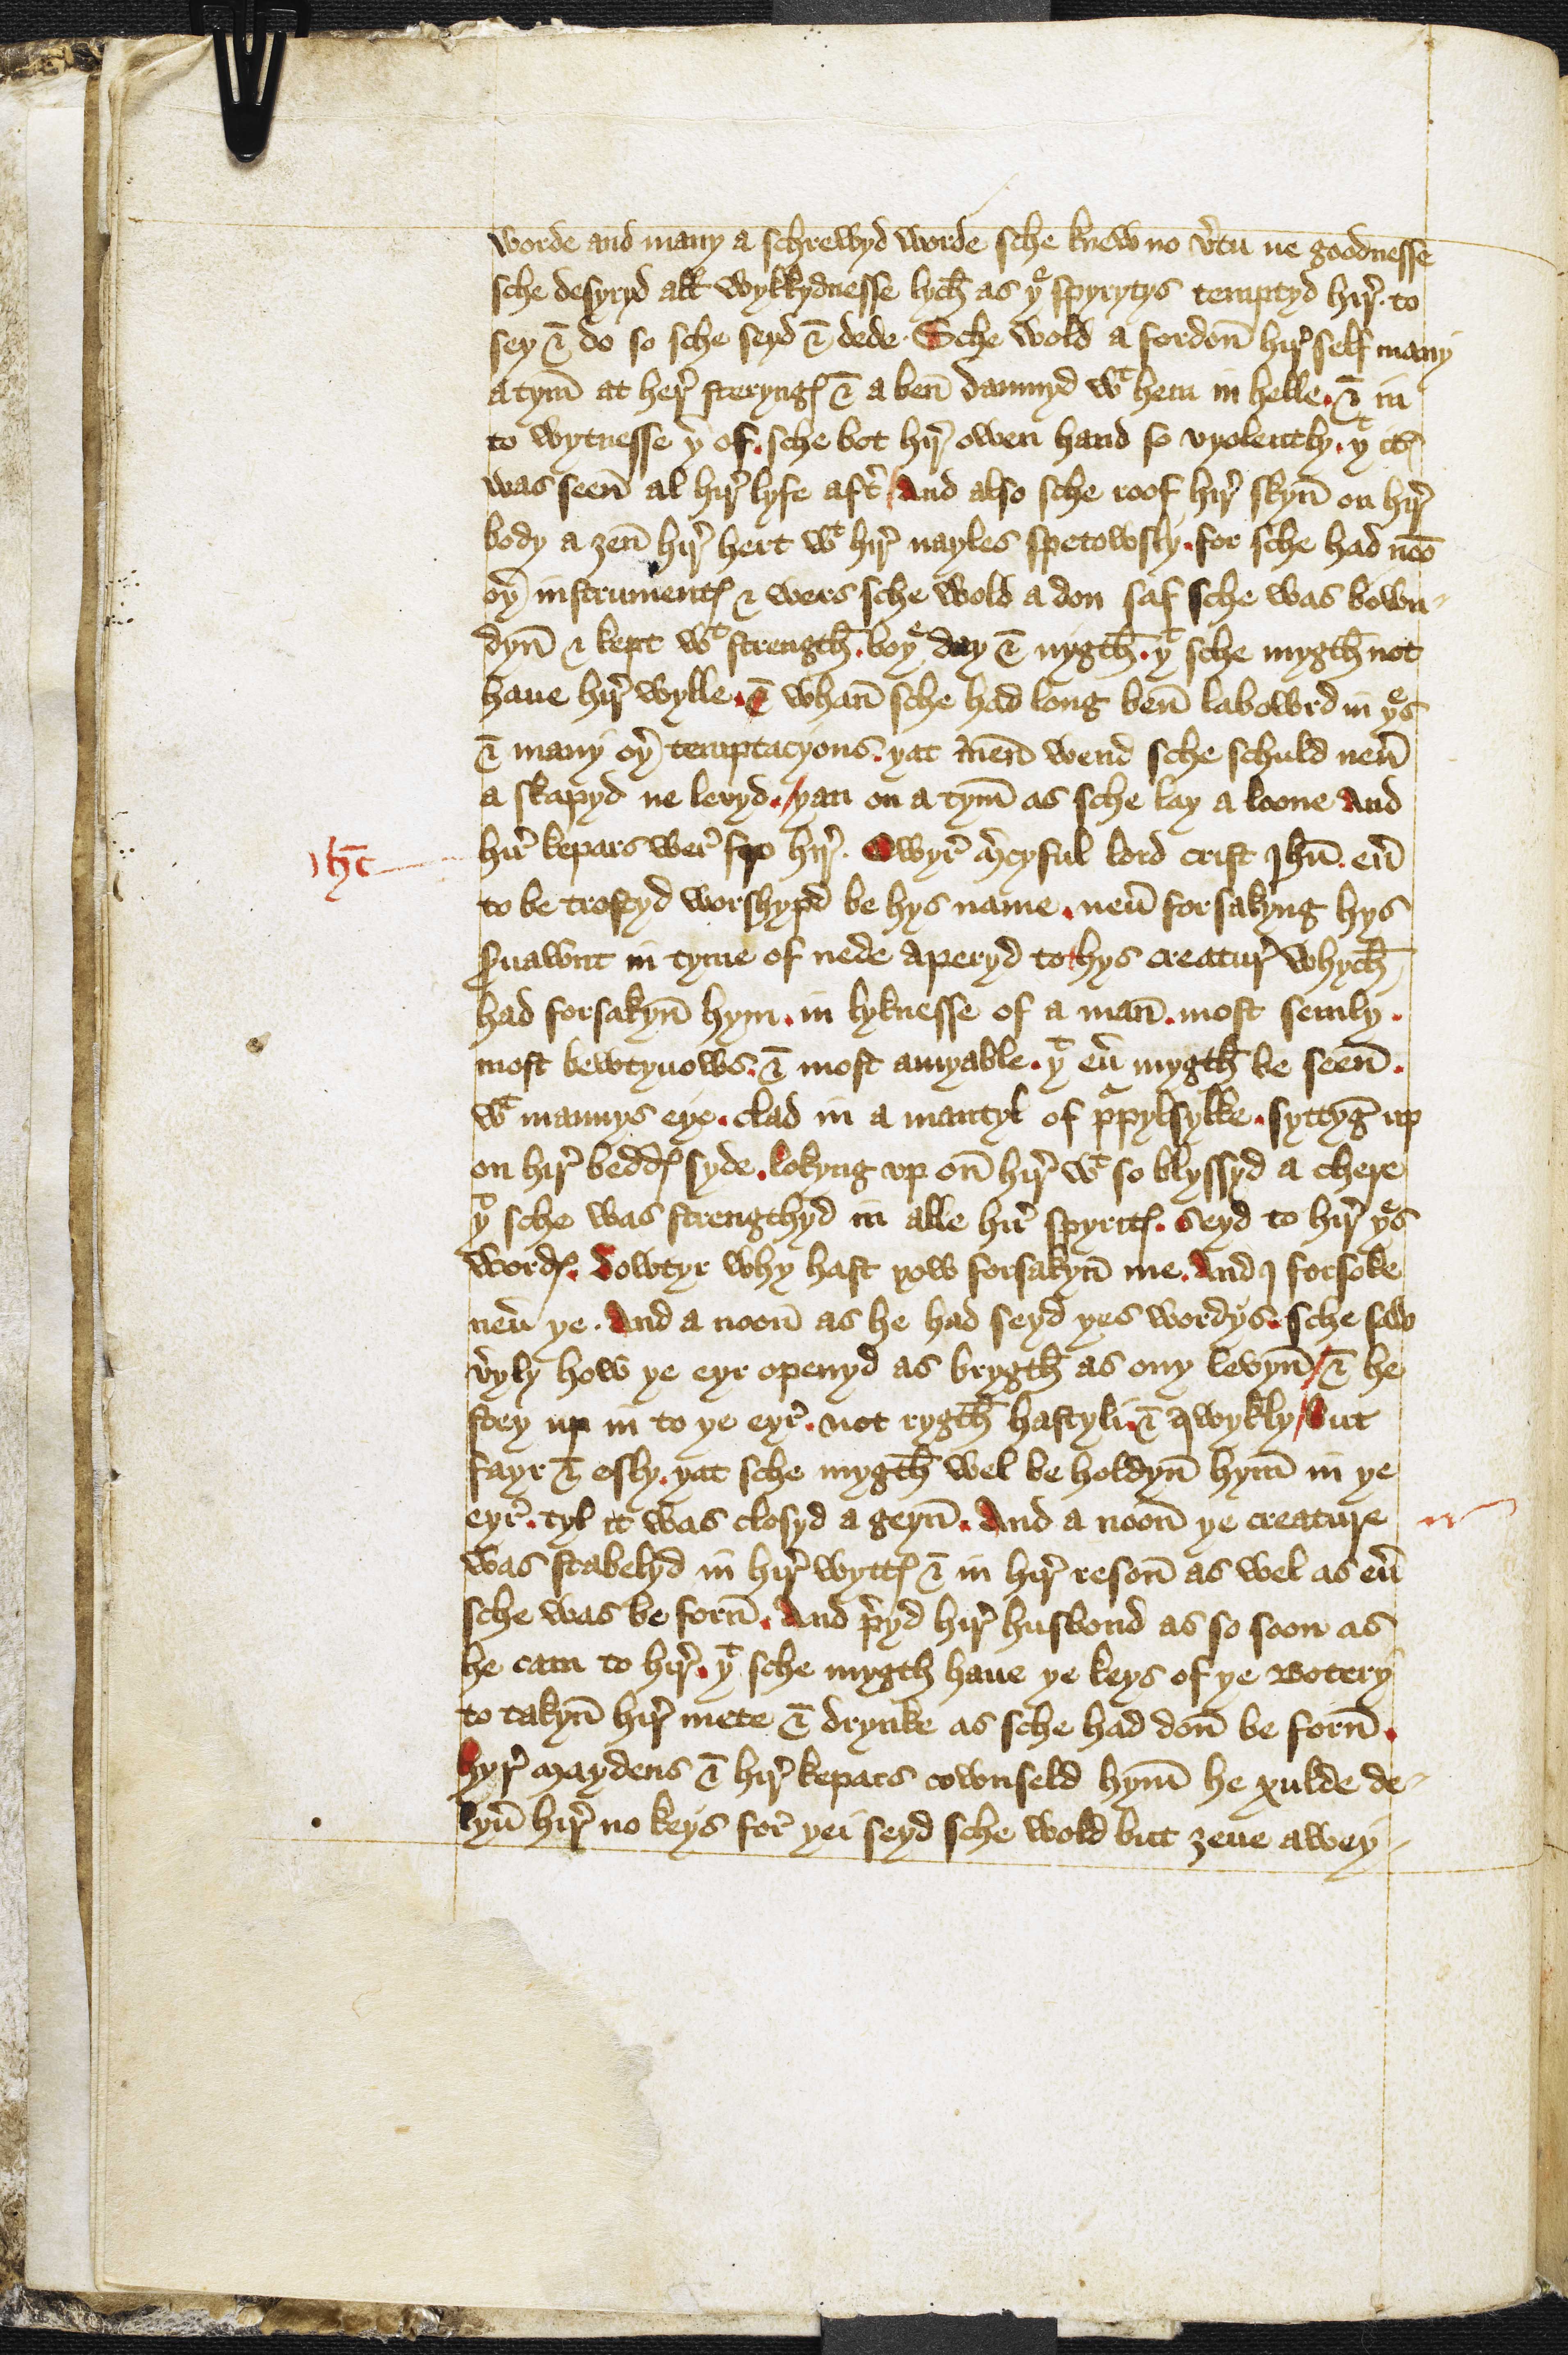 worde and many a schrewyd worde sche knew no v̉tu ne goodnesse
sche desyryd all wykkydnesse lych̄ as yͤ spyrytys temptyd hir̉. to
sey & do so sche seyd & dede. Sche wold a fordon̄ hir̉ self many
a tym̄ at her̉ steryngꝭ & a ben̄ dampnyd wͭ hem in helle. & in
to wytnesse ỷ of. sche bot hir̉ owen hand so vyolently. yͭ itꝭ
was seen̄ al hir̉ lyfe aft̉ / And also sche roof hir̉ skyn̄ on hir̉
body a ȝen̄ hir̉ hert wͭ hir̉ nayles spetowsly. for sche had noō
oỷ instrumentꝭ & wers sche wold a don saf sche was bown-
dyn̄ & kept wͭ strength̄. boyͤ day & nygth̄. yͭ sche mygth̄ not
haue hir̉ wylle. & whan̄ sche had long ben̄ labowrd in yͤs
& many oỷ temptacyons. yat men̄ wend sche schuld neủ
a skapyd ne levyd. / yan on a tym̄ as sche lay a loone And
hir̉ kepars wer̉ fro hir̉. Owyr̉ m̉cyful lord crist Jhū. eủ
ihc̄
to be trostyd worshypd be hys name. neủ forsakyng hys
s̉uawnt in tyme of nede aperyd to hys creatur̉ whych̄
had forsakyn̄ hym. in lyknesse of a man̄. most semly.
most bewtyuows. & most amyable. yͭ eủ mygth̄ be seen̄.
wͭ mannys eye. clad in a mantyl of pͬpylsylke. syttyg̉ up
on hir̉ beddꝭ syde. lokyng vp on̄ hir̉ wͭ so blyssyd a chere
yͭ sche was strengthyd in alle hir̉ spyritꝭ. seyd to hir̉ yͤs
wordꝭ. Dowtyr why hast yow forsakyn̄ me. And J forsoke
neủ ye. And a noon̄ as he had seyd yes wordys. sche saw
v̉yly how ye eyr openyd as brygth̄ as ony levyn̄ / & he
stey up in to ye eyr̉. not rygth̄ hastyli. & qwykly / But
fayr & esly. yat sche mygth̄ wel be holdyn̄ hym̄ in ye
eyr̉. tyl it was closyd a geyn̄. And a noon̄ ye creature
was stabelyd in hir̉ wyttꝭ & in hir̉ reson̄ as wel as eủ
sche was be forn̄. And p̉yd hir̉ husbond as so soon as
he cam to hir̉. yͭ sche mygth haue ye keys of ye Botery
to takyn̄ hir̉ mete & drynke as sche had don̄ be forn̄.
hyr̉ maydens & hir̉ kepars cownseld hym̄ he xulde de-
lyủ hir̉ no keys for̉ yei seyd sche wold but ȝeue awey-